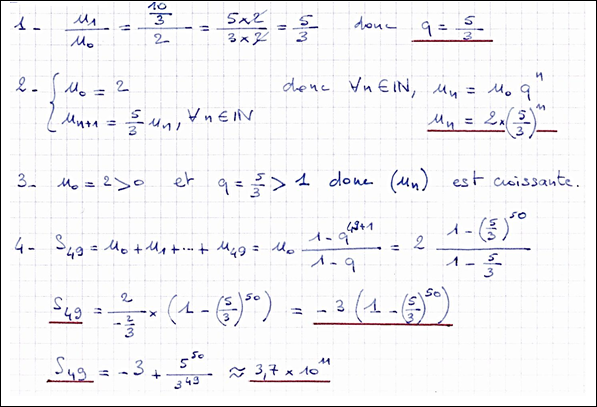 1- u₁/u₀ = (10/3)/2 = (5×2)/(3×2) = 5/3 donc q = 5/3
2- { u₀ = 2 donc ∀n∈ℕ, uₙ = u₀ qⁿ
uₙ₊₁ = 5/3 uₙ, ∀n∈ℕ uₙ = 2×(5/3)ⁿ
3- u₀ = 2 > 0 et q = 5/3 > 1 donc (uₙ) est croissante.
4- S₄₉ = u₀ + u₁ + ... + u₄₉ = u₀ (1-q⁴⁹⁺¹)/(1-q) = 2 (1-(5/3)⁵⁰)/(1-5/3)
S₄₉ = 2/(-2/3) × (1-(5/3)⁵⁰) = -3 (1-(5/3)⁵⁰)
S₄₉ = -3 + 5⁵⁰/3⁴⁹ ≈ 3,7 × 10¹¹